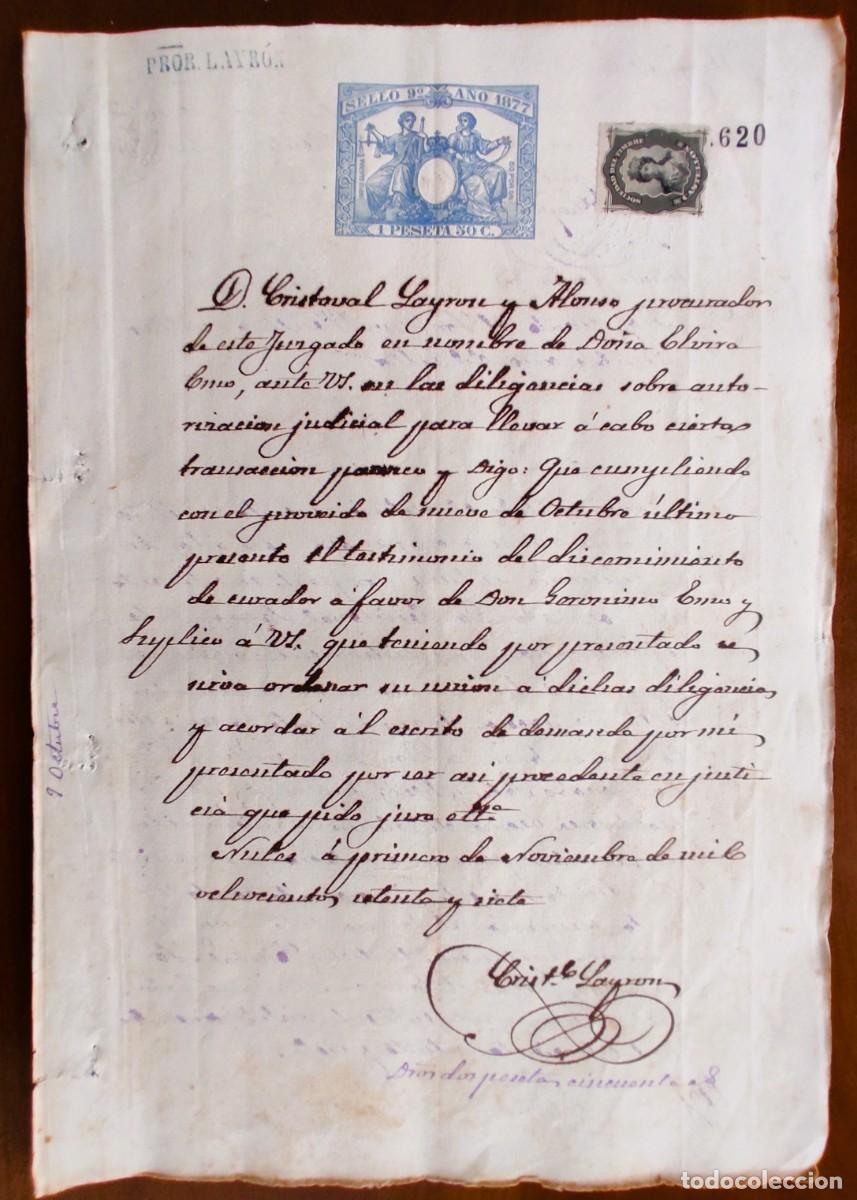 PROR. LAYRÓN
SELLO 9º AÑO 1877
1 PESETA 50 C.
SOCIEDAD DEL TIMBRE
.620
D. Cristoval Layron y Alonso procurador
de este Juzgado en nombre de Doña Elvira
Emo, ante VS. en las diligencias sobre auto-
rizacion judicial para llevar á cabo cierta
transaccion parezco y Digo: Que cumpliendo
con el proveido de nueve de Octubre último
presento el testimonio del discernimiento
de curador á favor de Don Geronimo Emo y
Suplico á VS. que teniendo por presentado se
sirva ordenar su union á dichas diligencias
y acordar ál escrito de demanda por mi
presentado por ser asi procedente en justi
cia que pido juro ettª
Nules á primero de Noviembre de mil
ochocientos setenta y siete
Crist.l Layron
9 Octubre
Dros dos pesetas cincuenta
todocoleccion